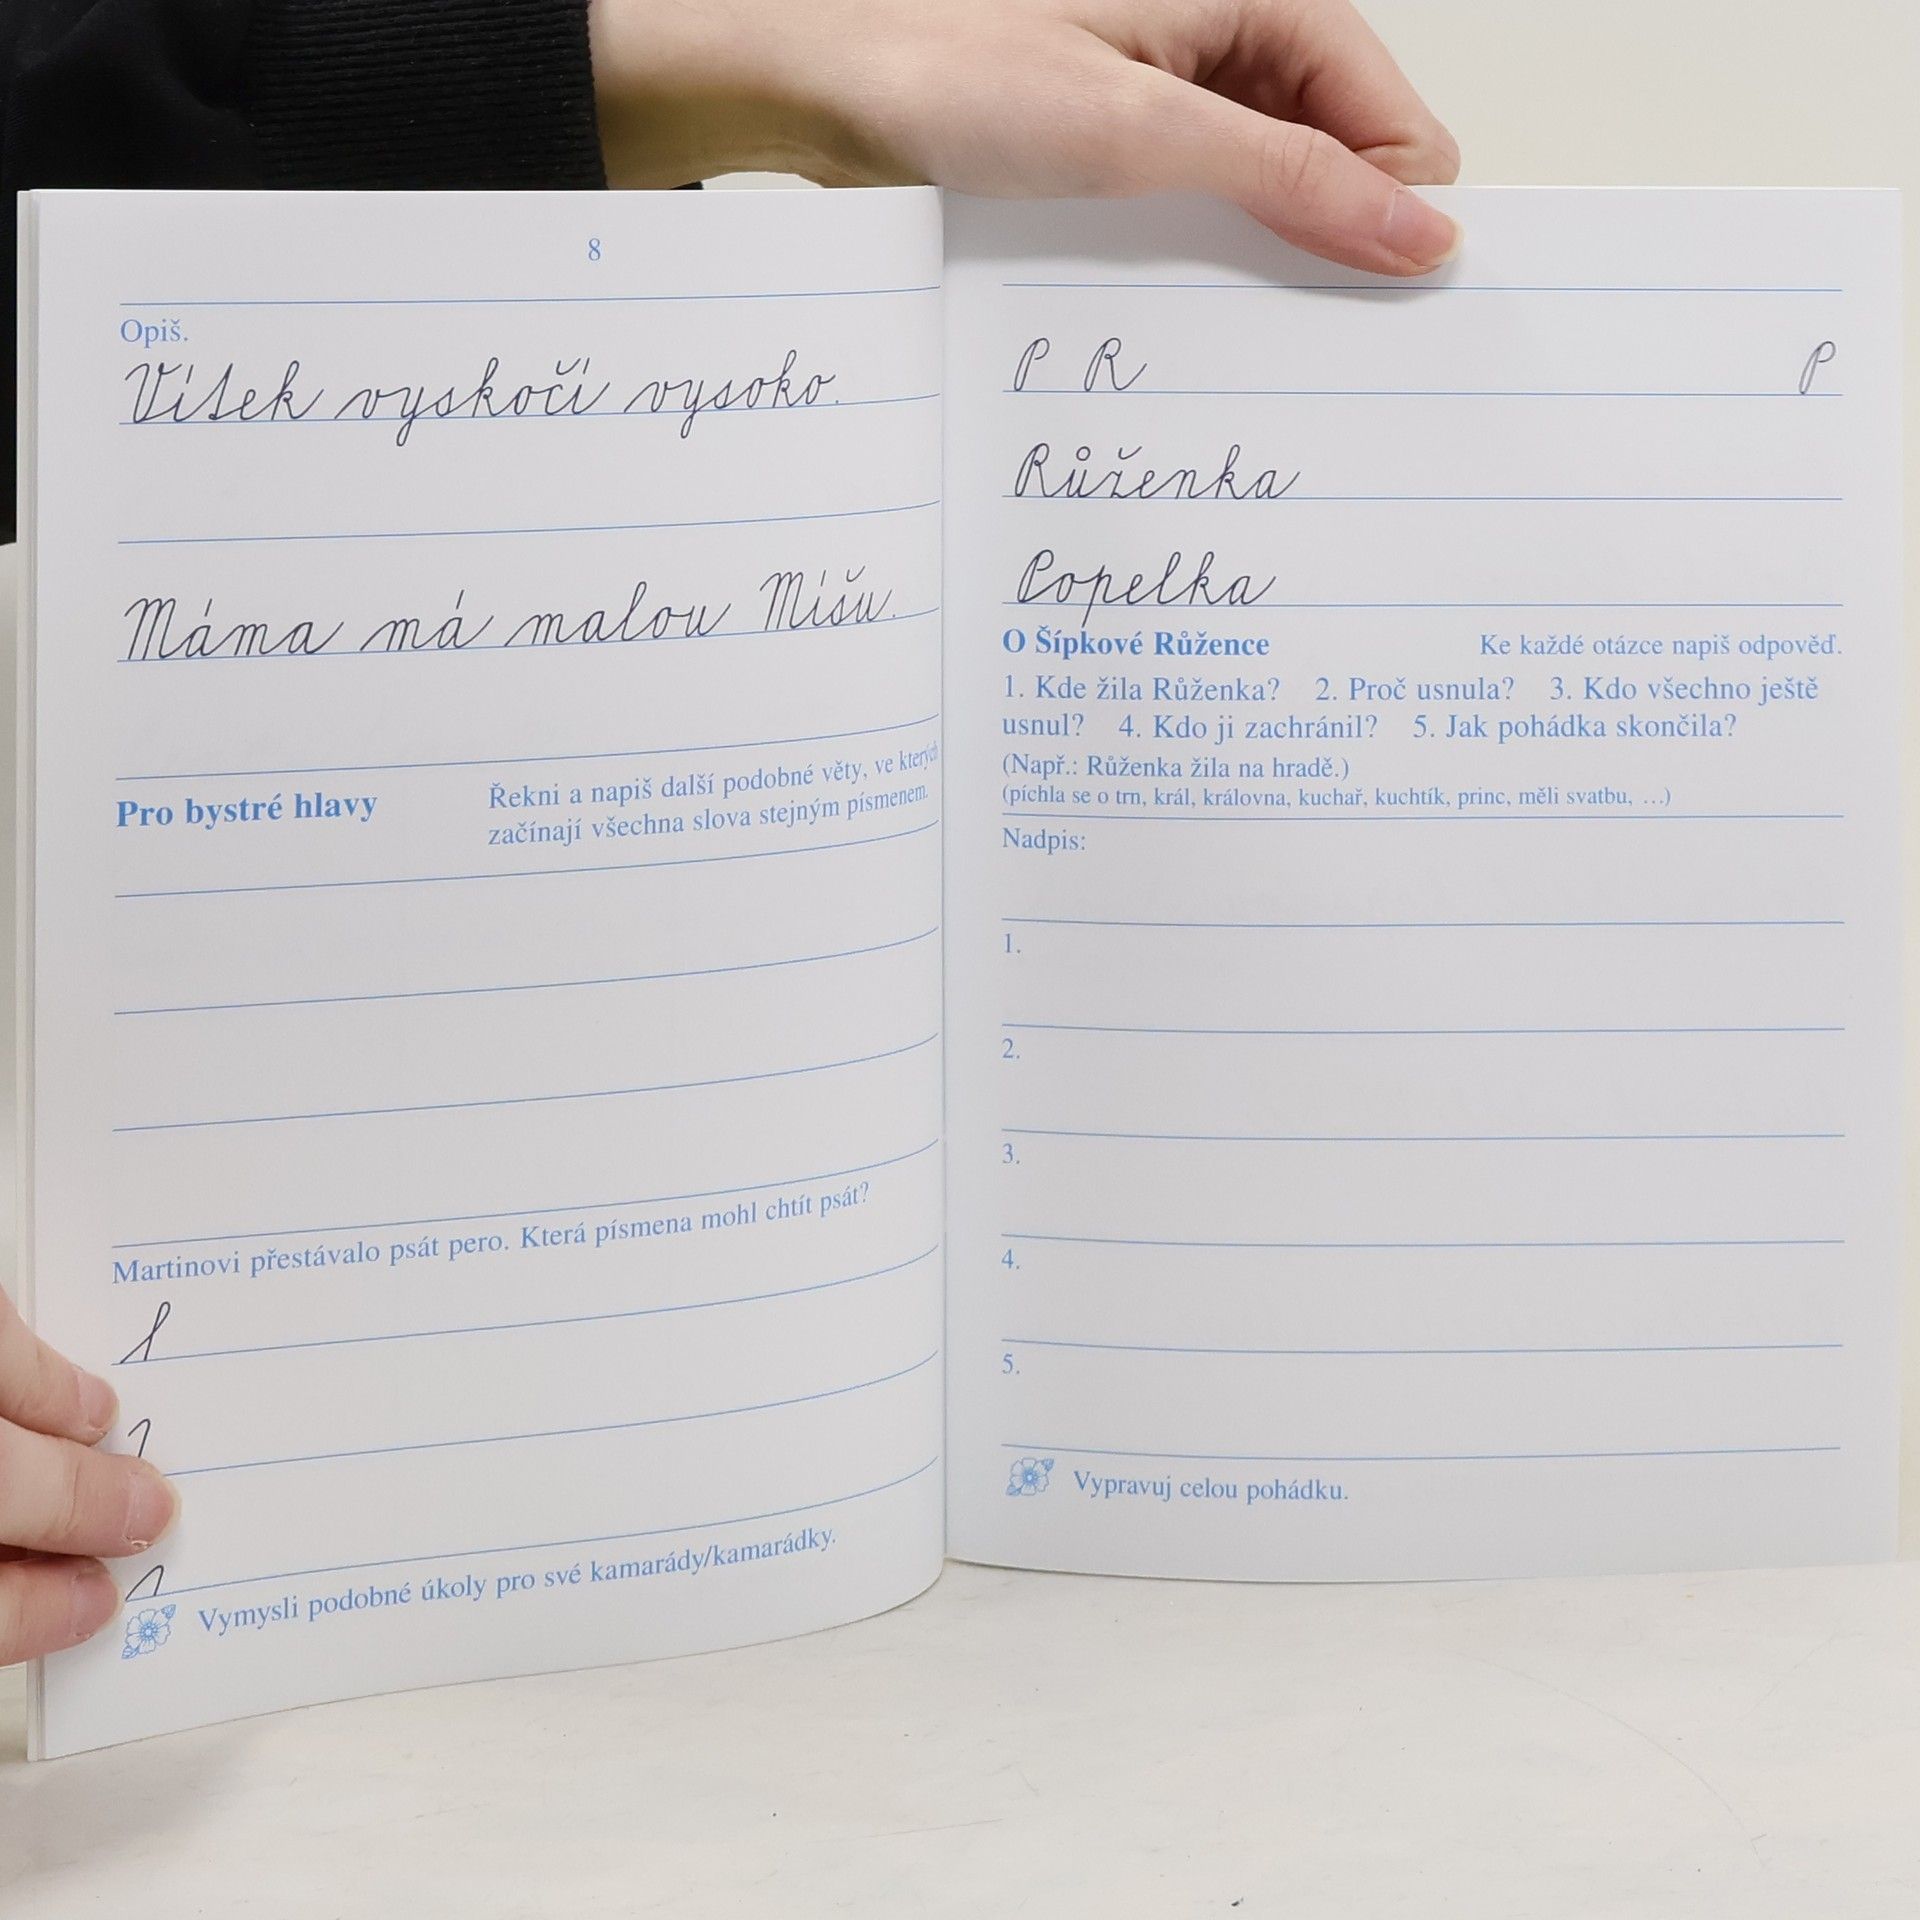 8
Opiš.
Vítek vyskočí vysoko.
Máma má malou Míšu.
Pro bystré hlavy
Řekni a napiš další podobné věty, ve kterých
začínají všechna slova stejným písmenem.
Martinovi přestávalo psát pero. Která písmena mohl chtít psát?
Vymysli podobné úkoly pro své kamarády/kamarádky.
P R P
Růženka
Popelka
O Šípkové Růžence Ke každé otázce napiš odpověď.
1. Kde žila Růženka? 2. Proč usnula? 3. Kdo všechno ještě
usnul? 4. Kdo ji zachránil? 5. Jak pohádka skončila?
(Např.: Růženka žila na hradě.)
(píchla se o trn, král, královna, kuchař, kuchtík, princ, měli svatbu, …)
Nadpis:
1.
2.
3.
4.
5.
Vypravuj celou pohádku.